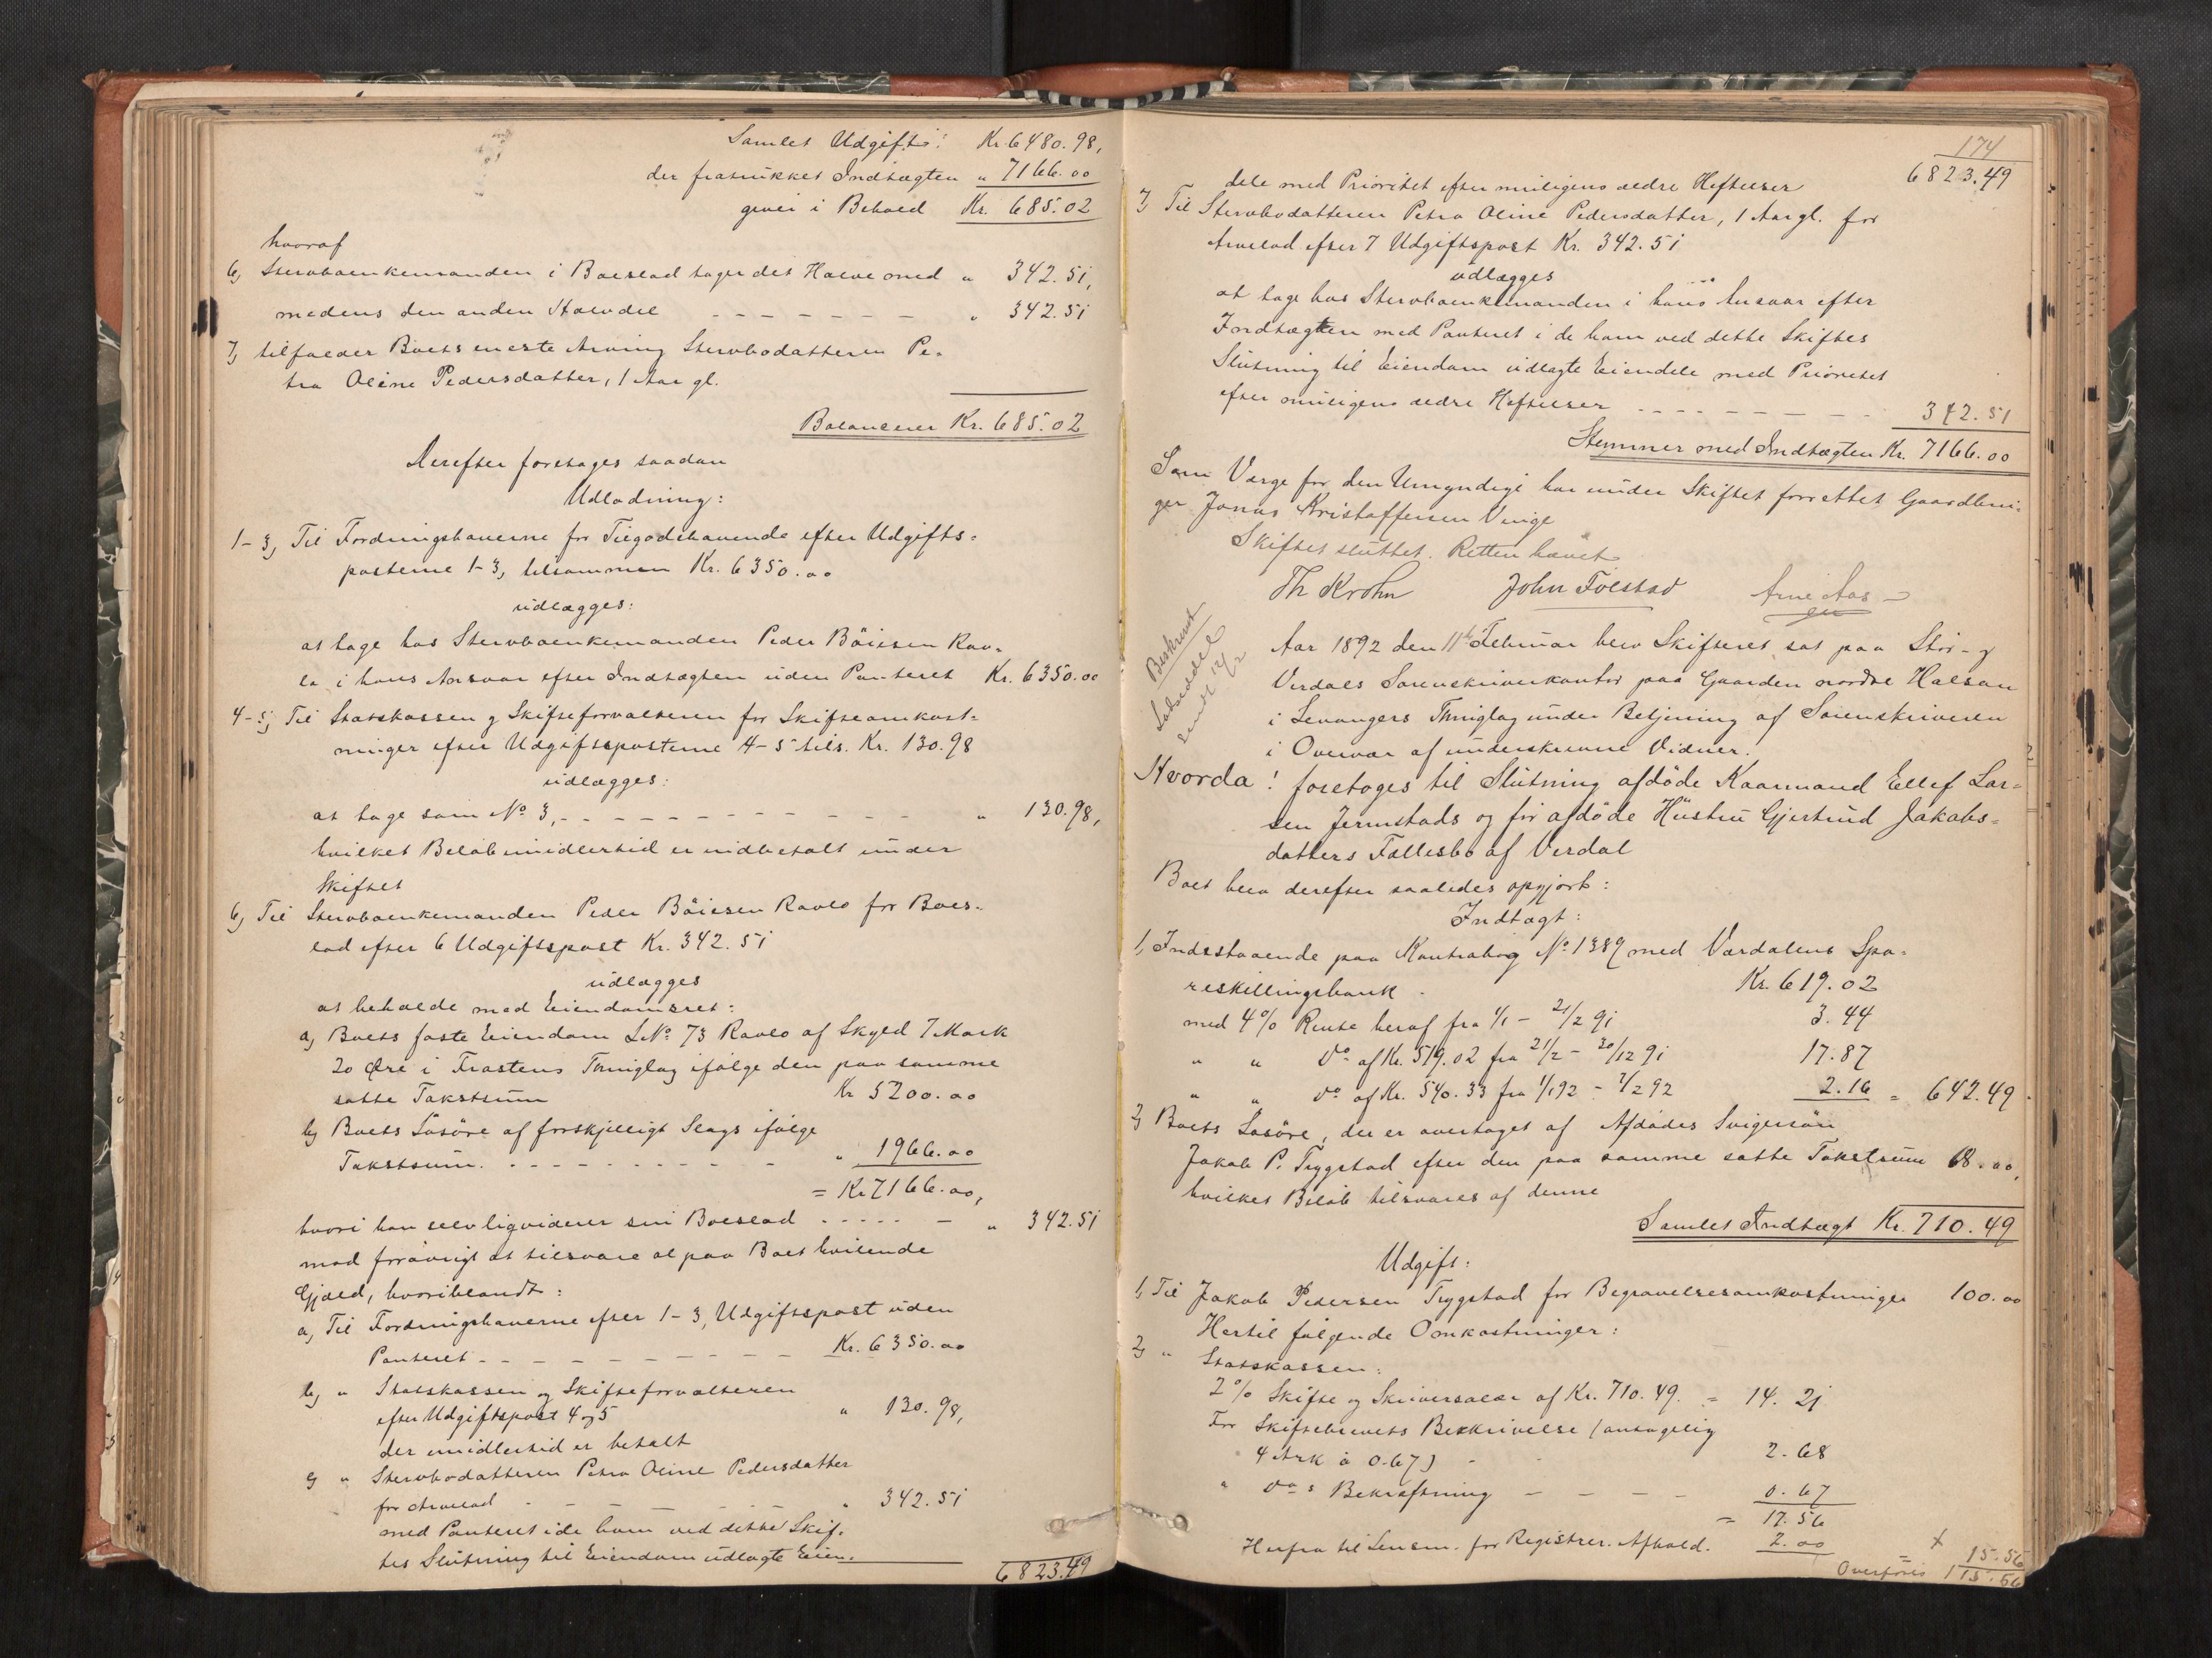 Samlet Udgift: Kr. 6480.98,
der fratrukket Indtægten " 7166.00
giver i Behold Kr. 685.02
hvoraf
6, Stervboenkemanden i Boeslod tager det Halve med " 342.51,
medens den anden Halvdel - - - - - - - " 342.51
7, tilfalder Boets eneste Arving Stervbodatteren Pe-
tra Oline Pedersdatter, 1 Aar gl.
Balancerer Kr. 685.02
Derefter foretages saadan
Udlodning:
1-3, Til Fordringshaverne for Tilgodehavende efter Udgifts-
posterne 1-3, tilsammen Kr. 6350.00
udlægges:
at tage hos Stervboenkemanden Peder Böiesen Rav-
lo i hans Ansvar efter Indtægten uden Panteret Kr. 6350.00
4-5, Til Statskassen og Skifteforvalteren for Skifteomkost-
ninger efter Udgiftsposterne 4-5 tils. Kr. 130.98
udlægges:
at tage som No 3, - - - - - - - - - - " 130.98,
hvilket Beløb imidlertid er udbetalt under
Skiftet
6, Til Stervboenkemanden Peder Böiesen Ravlo for Boes-
lod efter 6 Udgiftspost Kr. 342.51
udlægges
at beholde med Eiendomsret:
a, Boets faste Eiendom L.No 73 Ravlo af Skyld 7 Mark
20 Øre i Frostens Thinglag ifølge den paa samme
satte Takstsum Kr 5200.00
b, Boets Løsøre af forskjelligt Slags ifølge
Takstsum. - - - - - - - - - " 1966.00
= Kr. 7166.00,
hvori han selv ligviderer sin Boeslod - - - - - " 342.51
mod forøvrigt at tilsvare al paa Boet hvilende
Gjæld, hvoriblandt:
a, Til Fordringshaverne efter 1-3, Udgiftspost uden
Panteret - - - - - - - - - Kr. 6350.00
b, " Statskassen og Skifteforvalteren
efter Udgiftspost 4 og 5 " 130.98,
der imidlertid er betalt
c, " Stervbodatteren Petra Oline Pedersdatter
for Arvelod - - - - - " 342.51
med Panteret i de ham ved dette Skif-
tes Slutning til Eiendom udlagte Eien-
6823.49
174
6823.49
dele med Prioritet efter muligens ældre Heftelser
7, Til Stervbodatteren Petra Oline Pedersdatter, 1 Aar gl. for
Arvelod efter 7 Udgiftspost Kr. 342.51
udlægges
at tage hos Stervboenkemanden i hans Ansvar efter
Indtægten med Panteret i de ham ved dette Skiftes
Slutning til Eiendom udlagte Eiendele med Prioritet
efter muligens ældre Heftelser - - - - - - - 342.51
Stemmer med Indtægten Kr. 7166.00
Som Værge for den Umyndige har under Skiftet forrettet Gaardbru-
ger Jonas Kristoffersen Vinge
Skiftet sluttet. Retten hævet
Th Krohn John Tolstad Arne Aas
Beskrevet
Aar 1892 den 11te Februar blev Skifteret sat paa Stör- og
Værdals Sorenskriverkontor paa Gaarden nordre Halsan
i Levangers Thinglag under Betjening af Sorenskriveren
i Overvær af underskrevne Vidner.
Hvorda! foretoges til Slutning afdøde Kaarmand Ellef Lar-
sen Jermstads og før afdøde Hustru Gjertrud Jakobs-
datters Fællesbo af Verdal
Boet blev derefter saaledes opgjort:
Indtægt:
1, Indestaaende paa Kontrabog No 1389 med Værdalens Spa-
reskillingsbank. Kr. 619.02
med 4% Rente heraf fra 1/1 - 21/2 91 3.44
" " do af Kr. 519.02 fra 21/2 - 30/12 91 17.87
" " do af Kr. 540.33 fra 1/1 92 - 7/2 92 2.16 = 642.49
2, Boets Løsøre, der er overtaget af Afdødes Svigersøn
Jakob P. Trygstad efter den paa samme satte Takstsum 68.00,
hvilket Beløb tilsvares af denne
Samlet Indtægt Kr. 710.49
Udgift:
1, Til Jakob Pedersen Trygstad for Begravelsesomkostninger 100.00
Hertil følgende Omkostninger:
2, " Statskassen:
2% Skifte og Skriversalær af Kr. 710.49. = 14.21
For Skiftebrevets Beskrivelse (antagelig
4 Ark à 0.67) - - 2.68
" do s Bekræftning - - - - 0.67
= 17.56
Herfra til Lensm. for Registrer. Afhold. 2.00 + 15.56
Overføres = 115.56